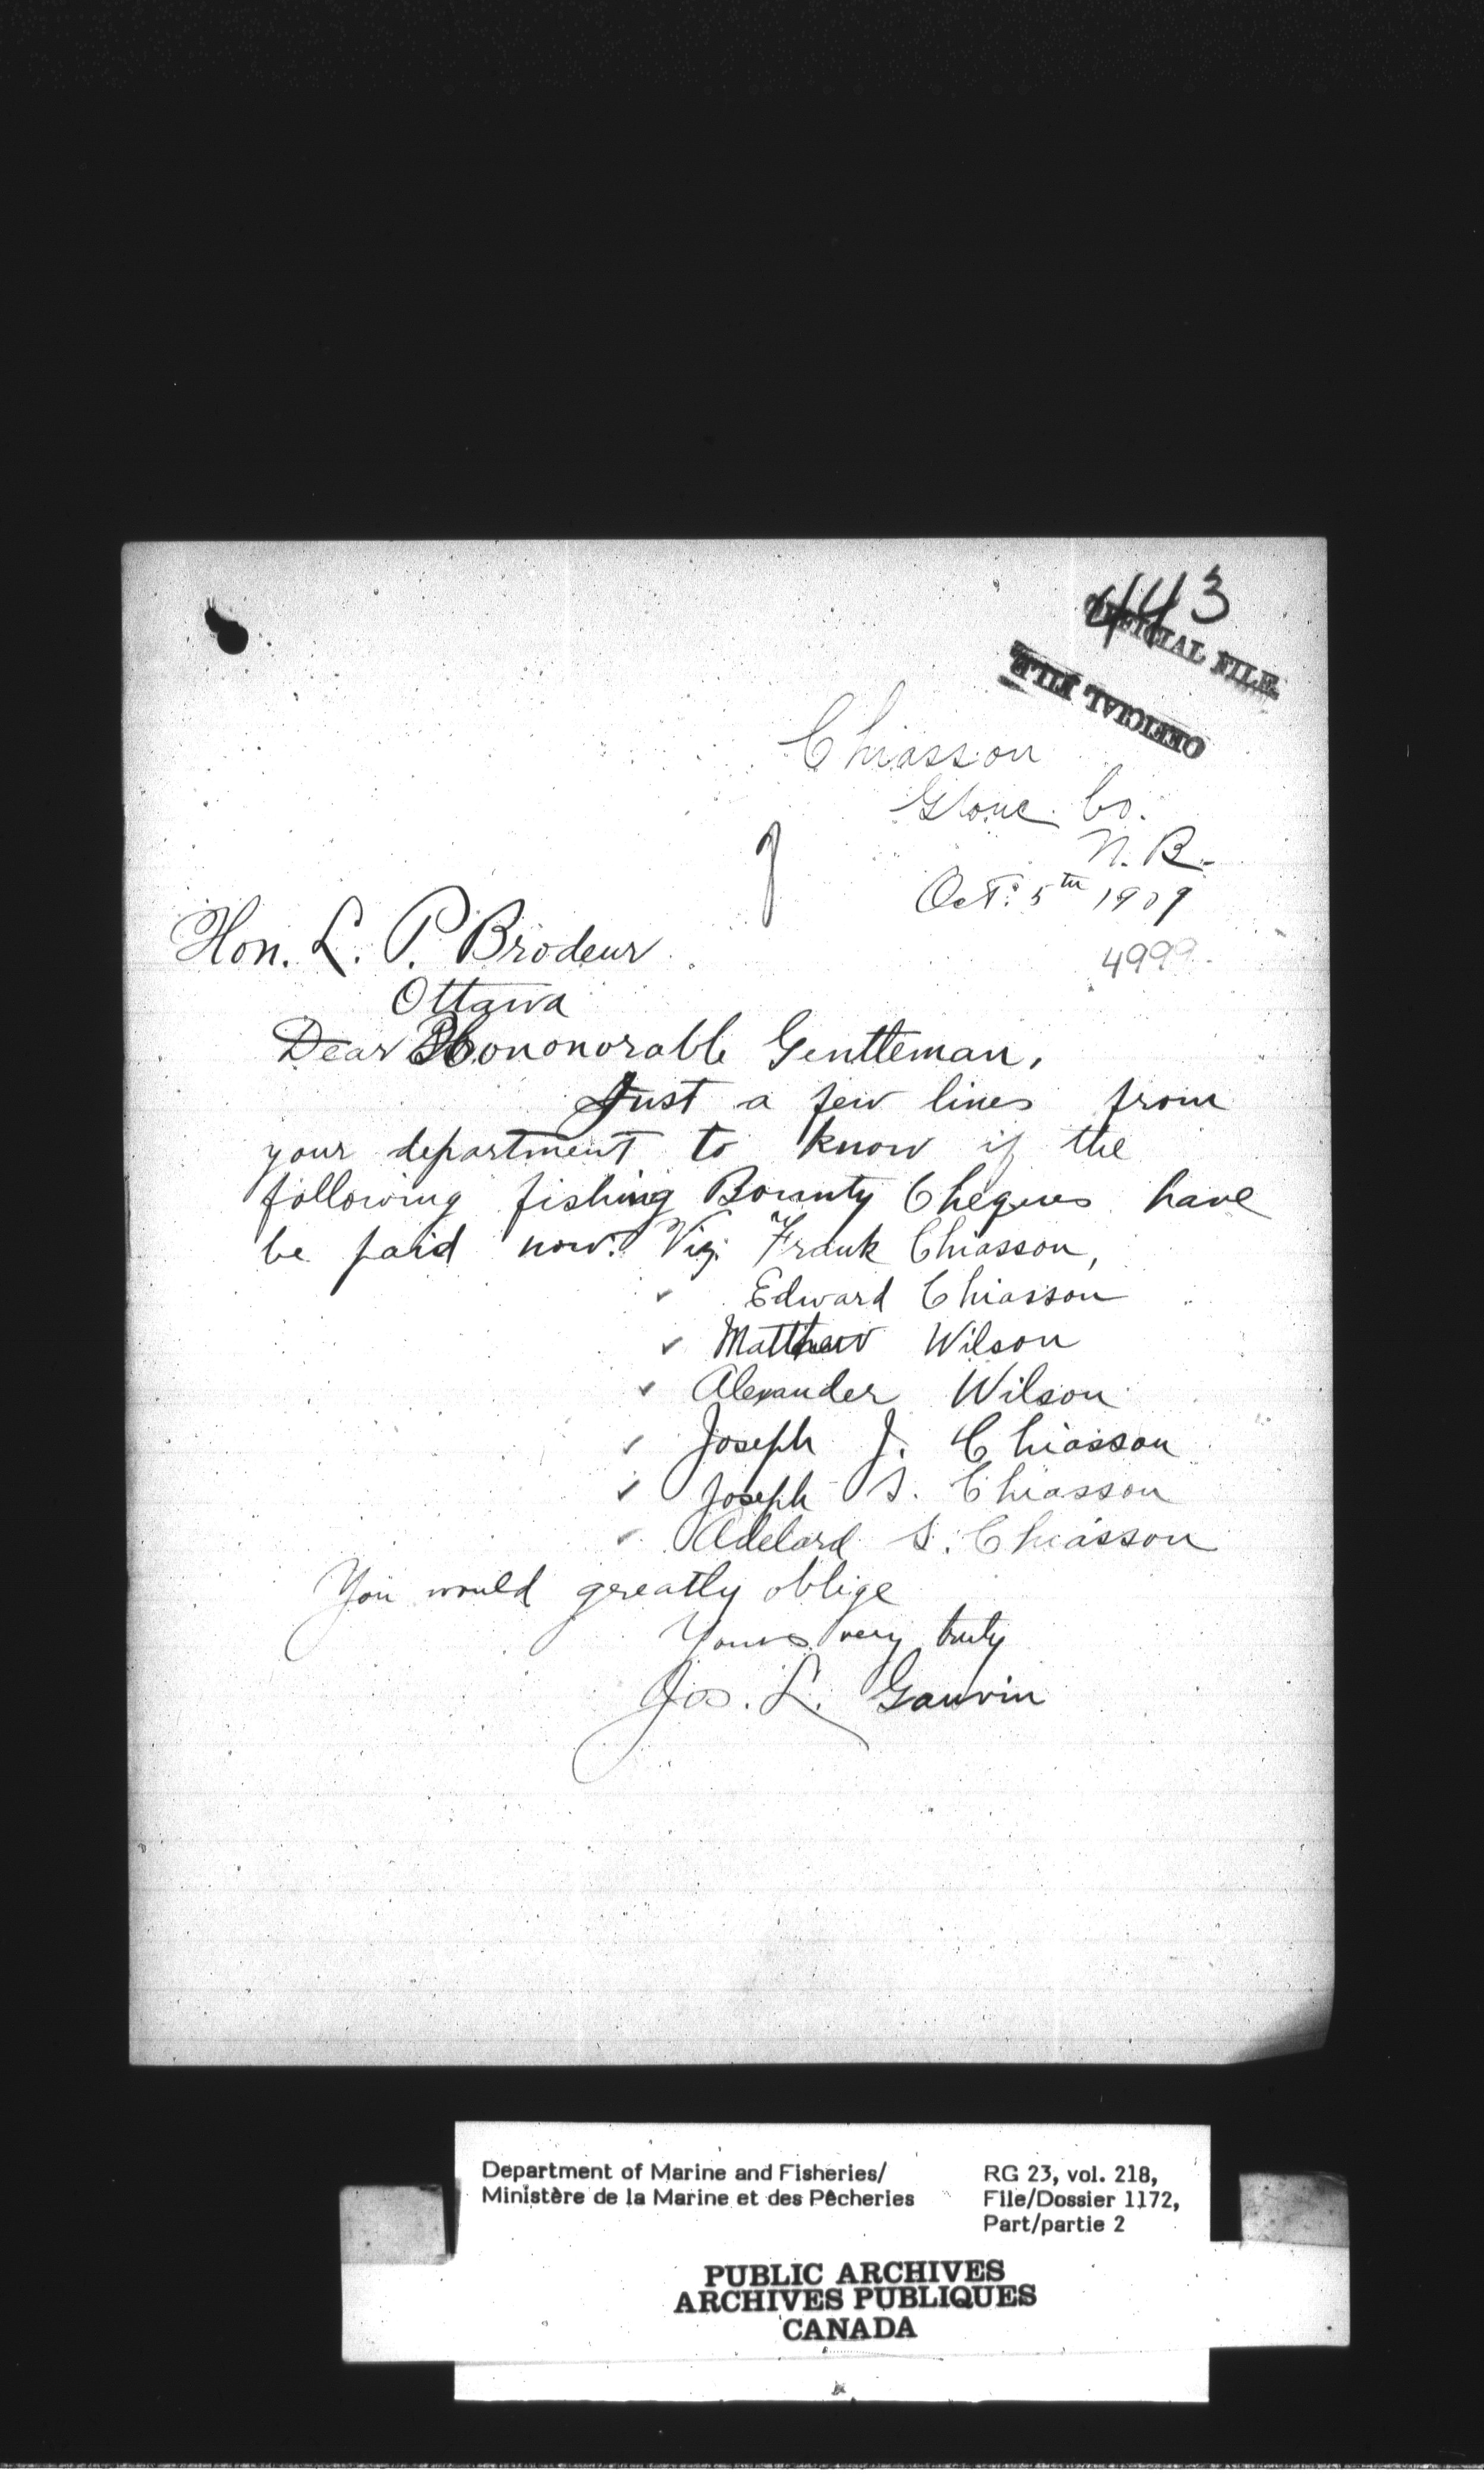 443
OFFICIAL FILE
OFFICIAL FILE
Chiasson
Glouc. Co.
N. B.
Oct: 5th 1909
4999
Hon. L. P. Brodeur
Ottawa
Dear Hononorable Gentleman,
Just a few lines from
your department to know if the
following fishing Bounty Cheques have
be paid now. Viz. Frank Chiasson,
✓ Edward Chiasson
✓ Matthew Wilson
✓ Alexander Wilson
✓ Joseph J. Chiasson
✓ Joseph S. Chiasson
✓ Adelard S. Chiasson
You would greatly oblige
Yours very truly
Jos. L. Gauvin
Department of Marine and Fisheries/
Ministère de la Marine et des Pêcheries
RG 23, vol. 218,
File/Dossier 1172,
Part/partie 2
PUBLIC ARCHIVES
ARCHIVES PUBLIQUES
CANADA